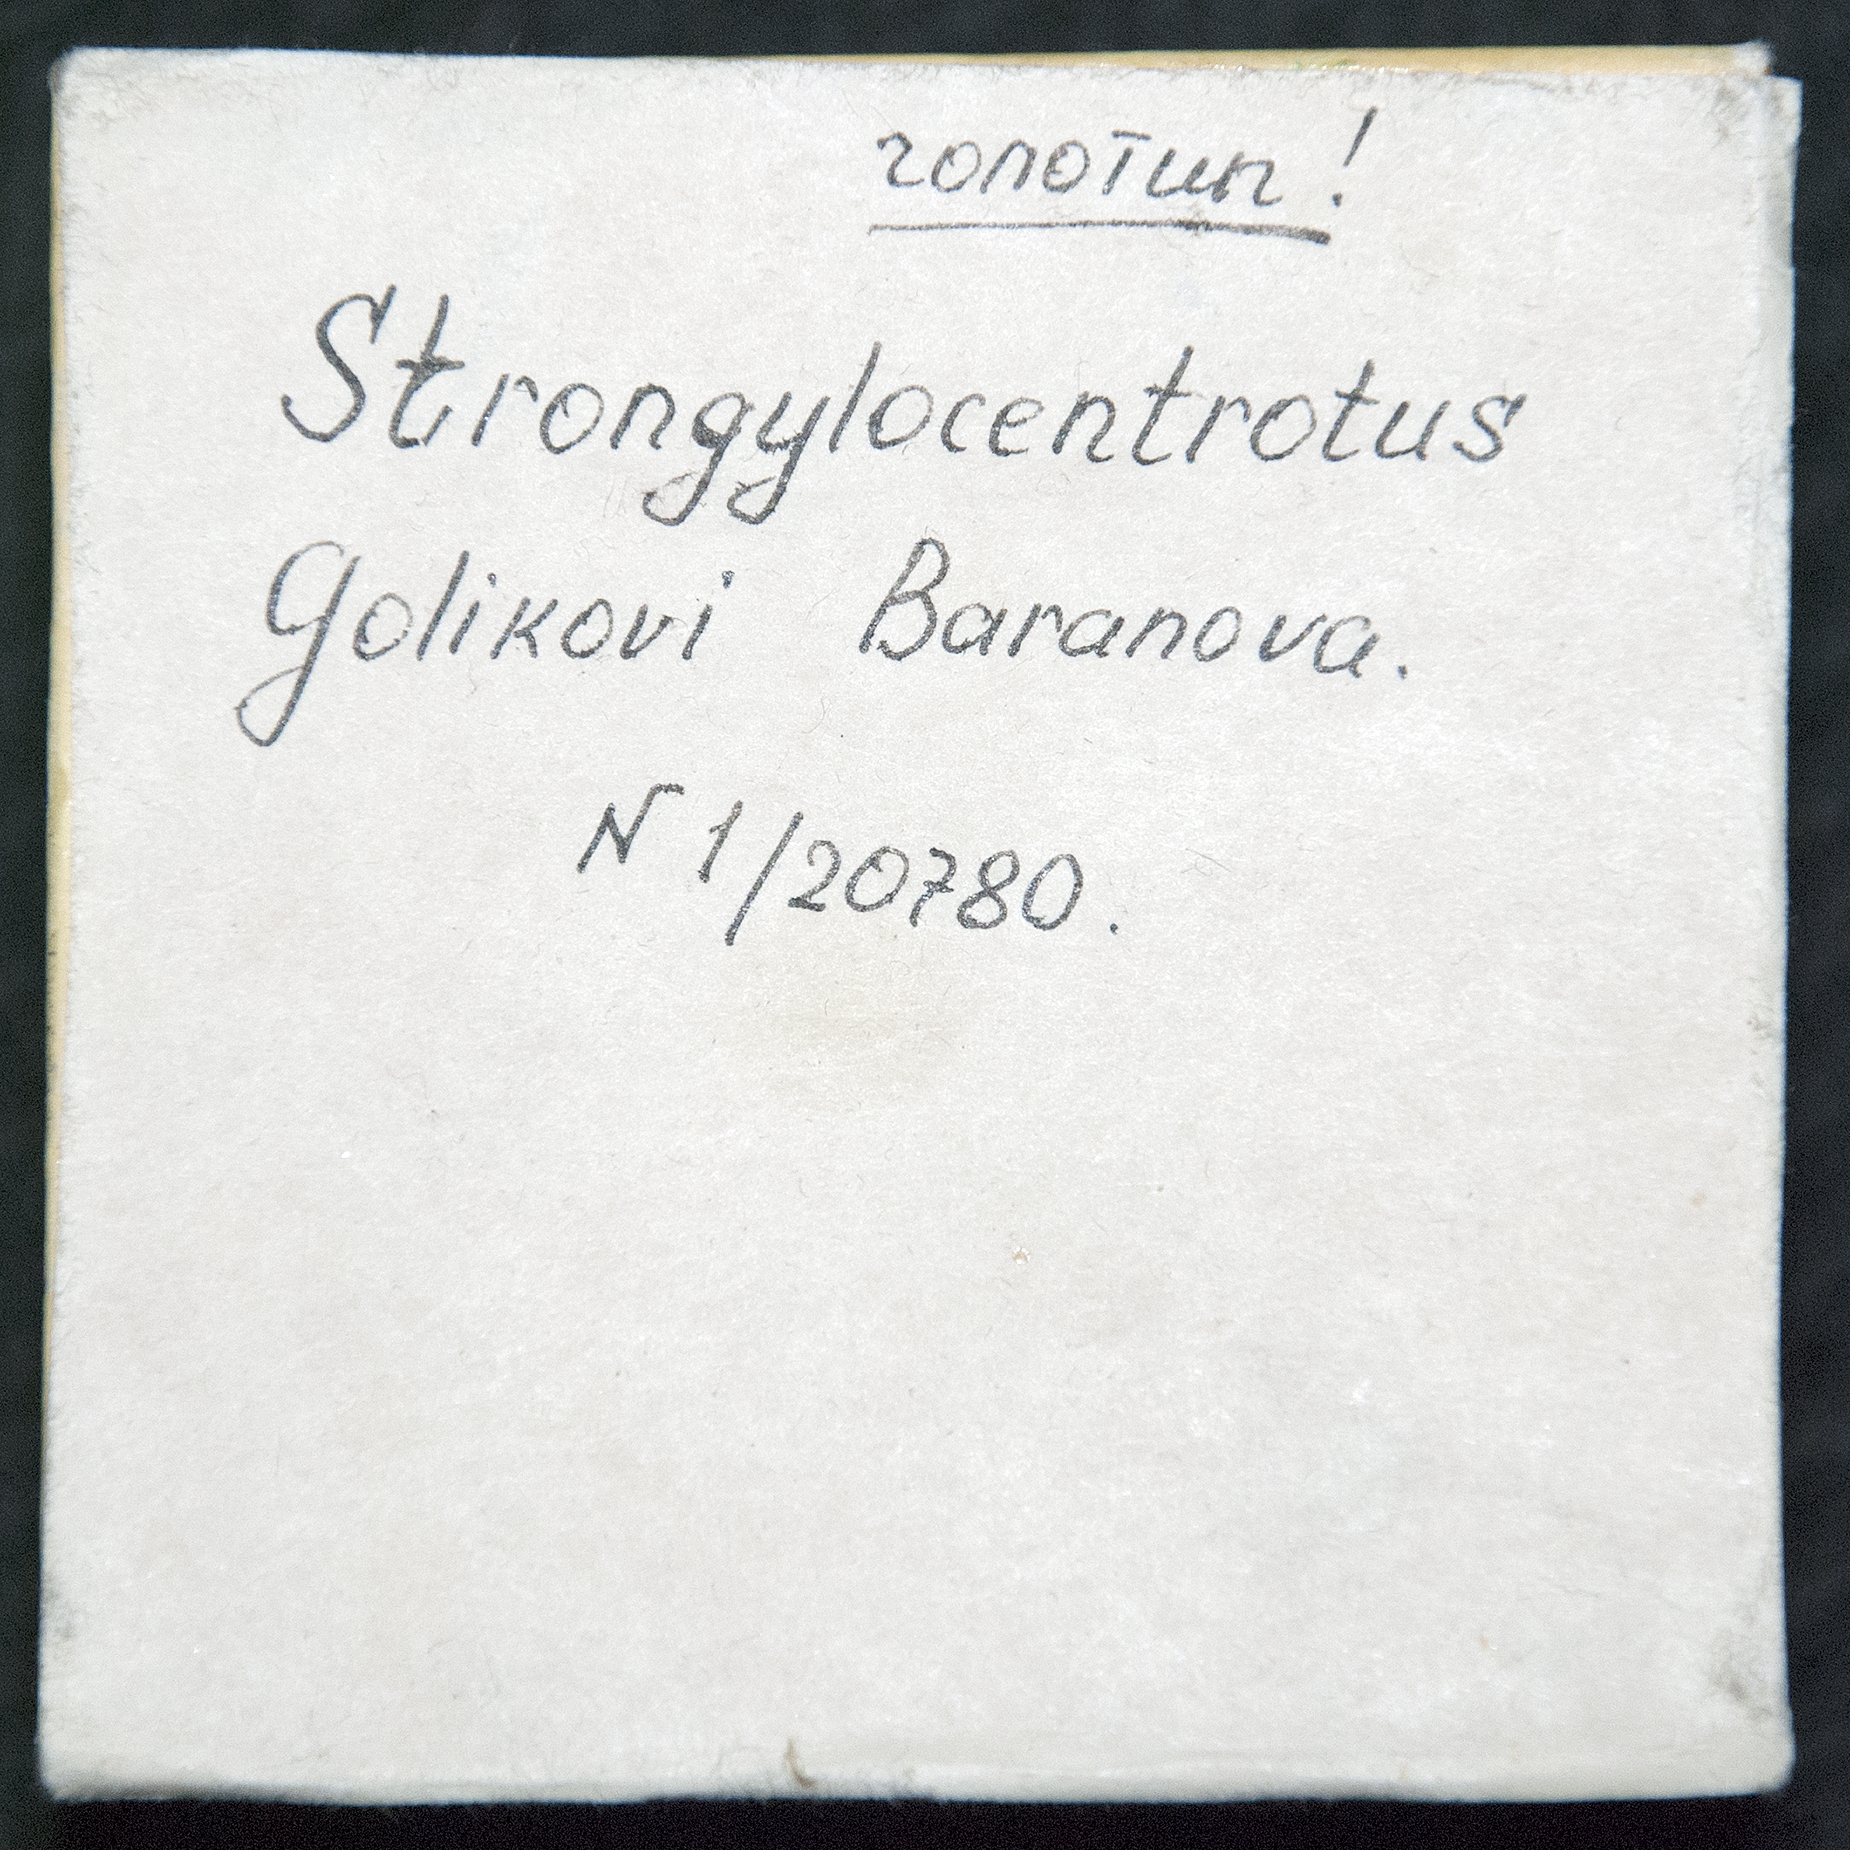 голотип!
Strongylocentrotus
Golikovi Baranova.
N 1/20780.